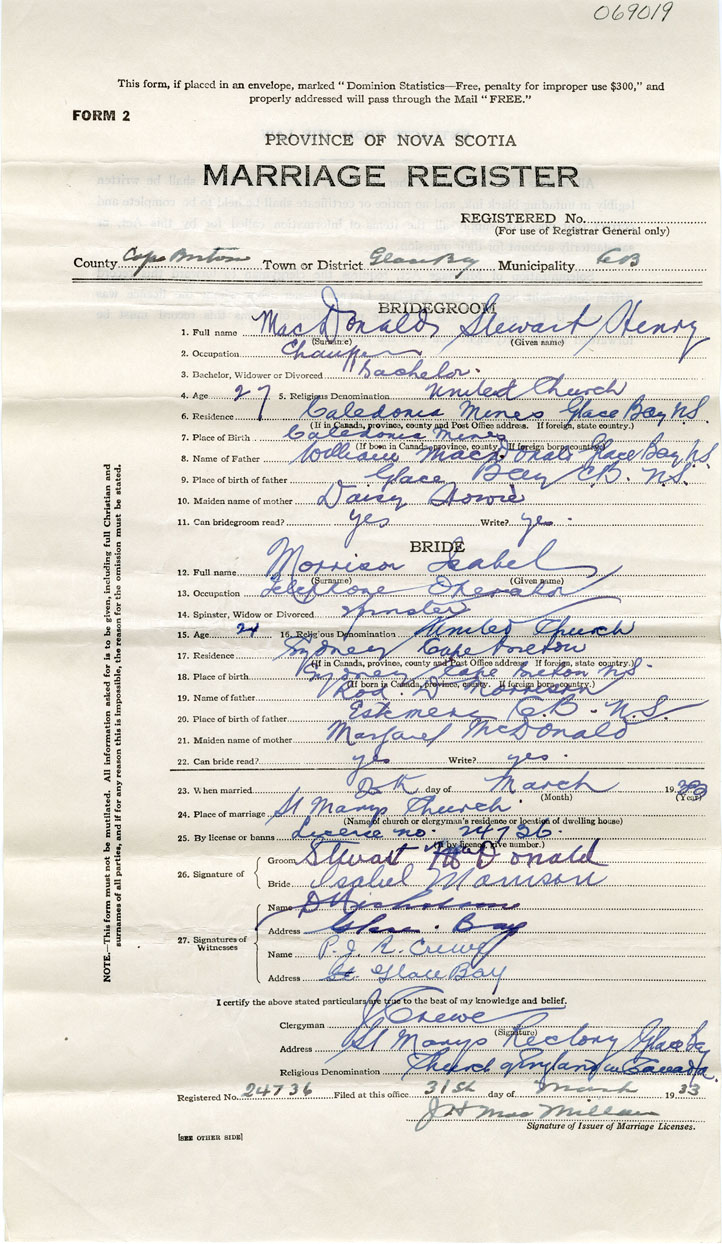 069019
This form, if placed in an envelope, marked "Dominion Statistics—Free, penalty for improper use $300," and
properly addressed will pass through the Mail "FREE."
FORM 2
PROVINCE OF NOVA SCOTIA
MARRIAGE REGISTER
REGISTERED No.
(For use of Registrar General only)
County Cape Breton Town or District Glace Bay Municipality CB
BRIDEGROOM
1. Full name MacDonald Stewart Henry
(Surname) (Given name)
2. Occupation
3. Bachelor, Widower or Divorced Bachelor
4. Age 27 5. Religious Denomination United Church
6. Residence Caledonia Mines Glace Bay N.S.
(If in Canada, province, county and Post Office address. If foreign, state country.)
7. Place of Birth Caledonia Mines
(If born in Canada, province, county. If foreign born country)
8. Name of Father William MacDonald Glace Bay N.S.
9. Place of birth of father Glace Bay C.B. N.S.
10. Maiden name of mother Daisy Howie
11. Can bridegroom read? yes Write? yes.
BRIDE
12. Full name Morrison Isabel
(Surname) (Given name)
13. Occupation Telephone Operator
14. Spinster, Widow or Divorced Spinster
15. Age 24 16. Religious Denomination United Church
17. Residence Sydney Cape Breton
(If in Canada, province, county and Post Office address. If foreign, state country.)
18. Place of birth Sydney Cape Breton N.S.
(If born in Canada, province, county. If foreign born country.)
19. Name of father Rod. D Morrison
20. Place of birth of father C.B. N.S.
21. Maiden name of mother Margaret McDonald
22. Can bride read? yes Write? yes.
23. When married day of March 19 33
(Month) (Year)
24. Place of marriage St Marys Church
(Name of church or clergyman's residence or location of dwelling house)
25. By license or banns License no. 24736.
(If by licence, give number.)
26. Signature of Groom Stewart McDonald
Bride Isabel Morrison
27. Signatures of Witnesses
Name
Address Glace Bay
Name P. J. R. Crewe
Address Glace Bay
I certify the above stated particulars are true to the best of my knowledge and belief.
Clergyman Crewe
(Signature)
Address St Marys Rectory Glace Bay
Religious Denomination Church of England in Canada.
Registered No. 24736 Filed at this office 31st day of March 19 33
J H MacMillan
Signature of Issuer of Marriage Licenses.
[SEE OTHER SIDE]
NOTE.—This form must not be mutilated. All information asked for is to be given, including full Christian and
surnames of all parties, and if for any reason this is impossible, the reason for the omission must be stated.